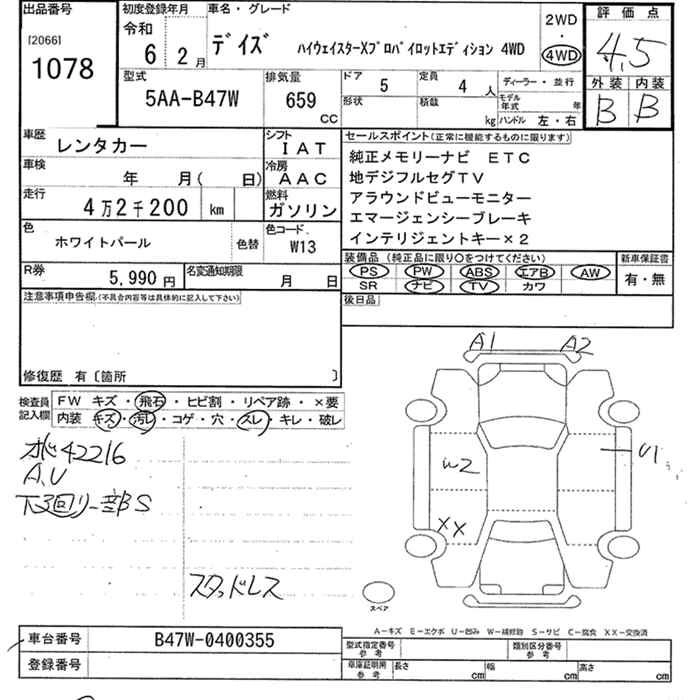 出品番号
[2066]
1078
初度登録年月
令和
6 2月
車名・グレード
デイズ ハイウェイスターXプロパイロットエディション 4WD
2WD
・
4WD
評価点
4.5
外装 内装
B B
型式
5AA-B47W
排気量
659
CC
ドア
5
定員
4 人
形状
積載
kg
ディーラー・並行
モデル年式 年
ハンドル 左・右
車歴
レンタカー
シフト
IAT
車検
年 月( 日)
冷房
AAC
走行
4万2千200 km
燃料
ガソリン
色
ホワイトパール
色替
色コード
W13
R券
5,990円
名変通知期限
月 日
セールスポイント(正常に機能するものに限ります)
純正メモリーナビ ETC
地デジフルセグTV
アラウンドビューモニター
エマージェンシーブレーキ
インテリジェントキー×2
装備品 (純正品に限り○をつけてください)
PS PW ABS エアB AW
SR ナビ TV カワ
新車保証書
有・無
後日品
注意事項申告欄(不具合内容等は具体的に記入して下さい)
修復歴 有〔箇所 〕
検査員
記入欄
FW キズ・飛石・ヒビ割・リペア跡・×要
内装 キズ・汚レ・コゲ・穴・スレ・キレ・破レ
42216
A,U
下回り一部S
スタッドレス
A1 A2
W2
U1
XX
スペア
A-キズ E-エクボ U-凹み W-補修跡 S-サビ C-腐食 XX-交換済
車台番号
B47W-0400355
登録番号
型式指定番号
参考
類別区分番号
参考
車庫証明用
参考
長さ cm 幅 cm 高さ cm